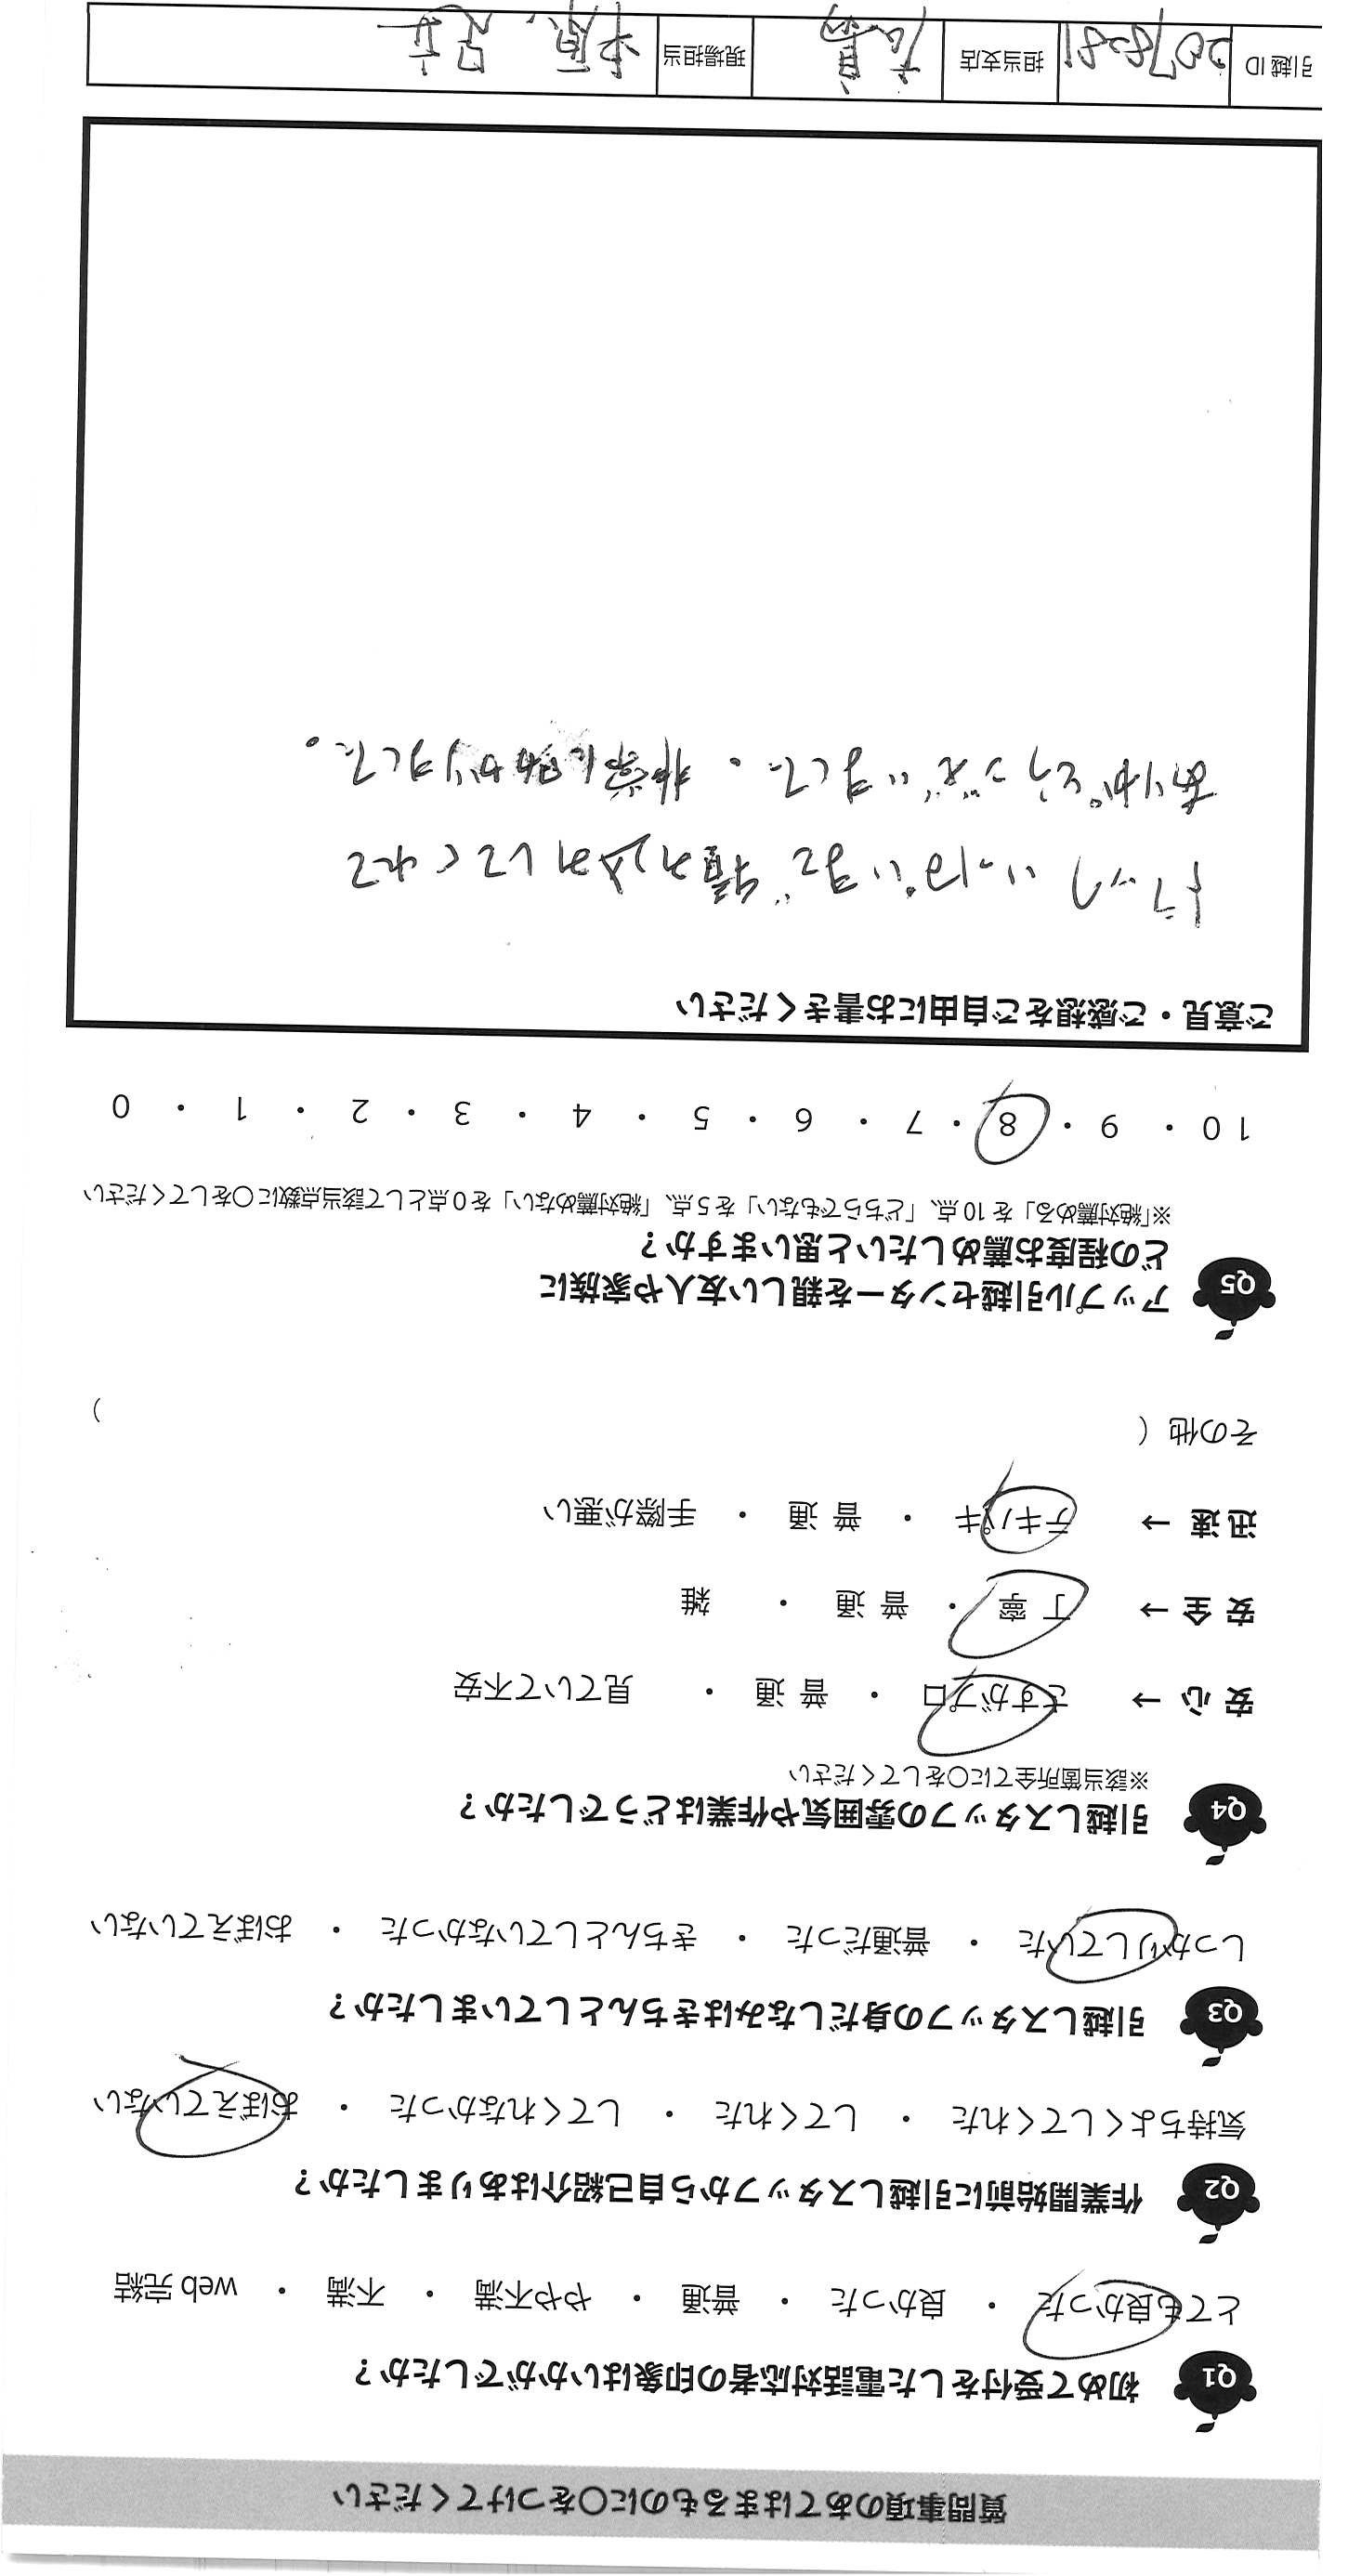 質問事項のあてはまるものに〇をつけてください
Q1 初めて受付をした電話対応者の印象はいかがでしたか？
とても良かった ・ 良かった ・ 普通 ・ やや不満 ・ 不満 ・ web完結
Q2 作業開始前に引越しスタッフから自己紹介はありましたか？
気持ちよくしてくれた ・ してくれた ・ してくれなかった ・ おぼえていない
Q3 引越しスタッフの身だしなみはきちんとしていましたか？
しっかりしていた ・ 普通だった ・ きちんとしていなかった ・ おぼえていない
Q4 引越しスタッフの雰囲気や作業はどうでしたか？
※該当箇所全てに〇をしてください
安心 → さすがプロ ・ 普通 ・ 見ていて不安
安全 → 丁寧 ・ 普通 ・ 雑
迅速 → テキパキ ・ 普通 ・ 手際が悪い
その他（ ）
Q5 アップル引越センターを親しい友人や家族に
どの程度お薦めしたいと思いますか？
※「絶対薦める」を10点、「どちらでもない」を5点、「絶対薦めない」を0点として該当点数に〇をしてください
10 ・ 9 ・ 8 ・ 7 ・ 6 ・ 5 ・ 4 ・ 3 ・ 2 ・ 1 ・ 0
ご意見・ご感想をご自由にお書きください
トラックいっぱいまで積み込みしてくれて
ありがとうございました。非常に助かりました。
引越ID 2078281 担当支店 現場担当